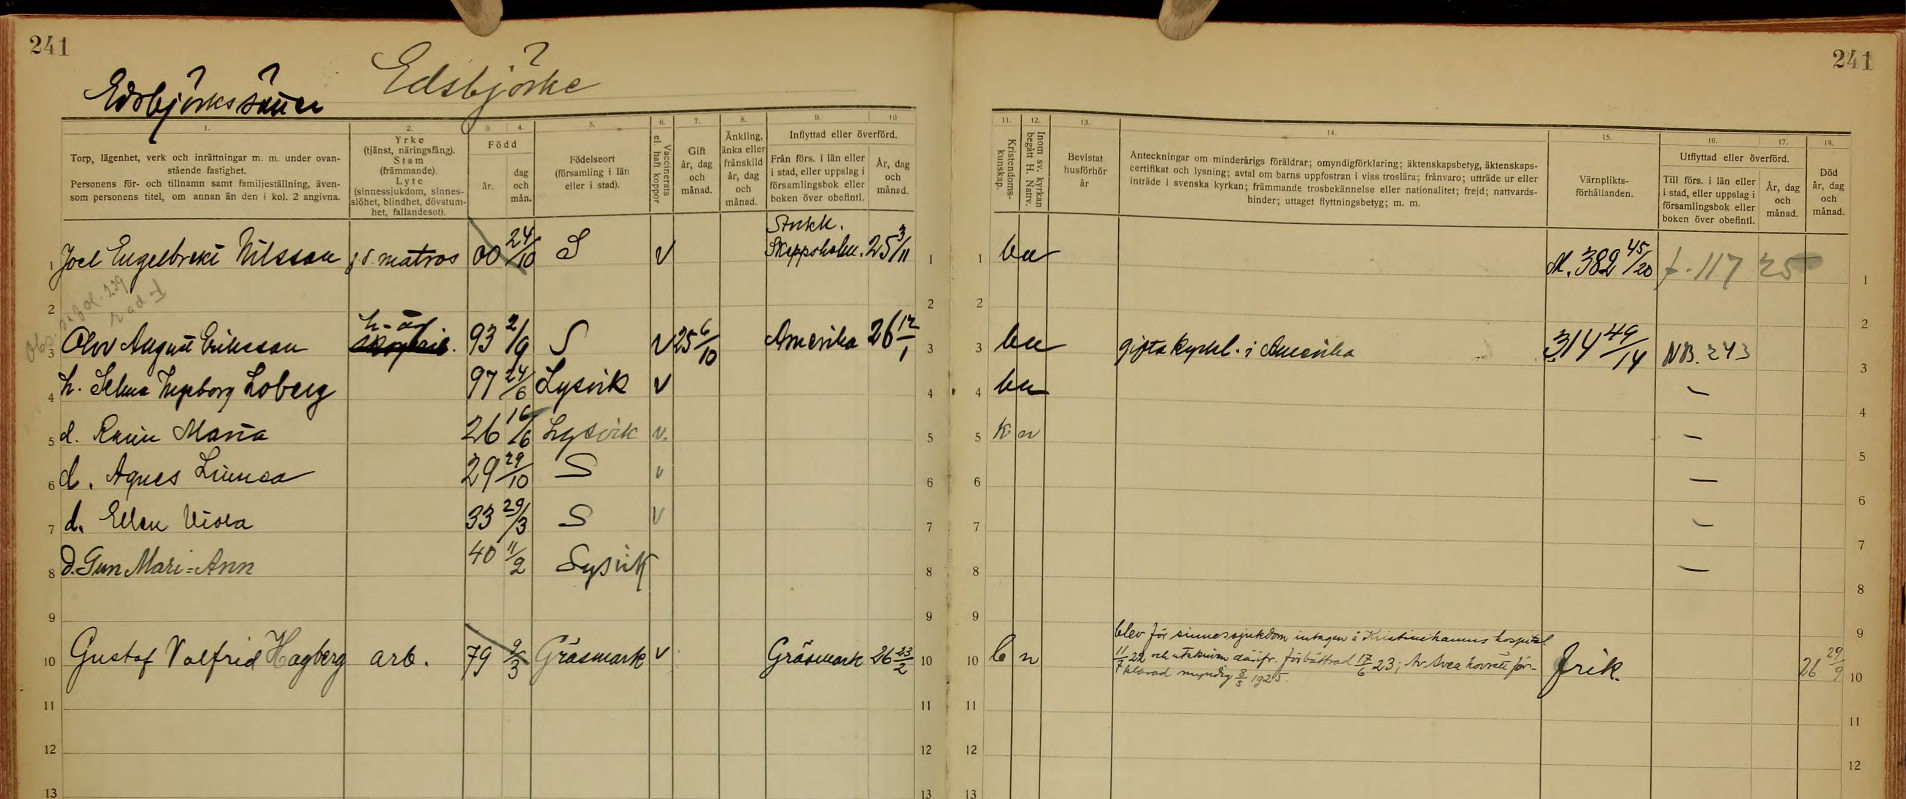 241
241
Edsbjörke
Edsbjörkssäter
1.
Torp, lägenhet, verk och inrättningar m. m. under ovan-
stående fastighet.
Personens för- och tillnamn samt familjeställning, även-
som personens titel, om annan än den i kol. 2 angivna.
2.
Yrke
(tjänst, näringsfång).
Stam
(främmande).
Lyte
(sinnessjukdom, sinnes-
slöhet, blindhet, dövstum-
het, fallandesot).
3.
4.
Född
år.
dag
och
mån.
5.
Födelseort
(församling i län
eller i stad).
6.
Vaccinerats
el. haft koppor
7.
Gift
år, dag
och
månad.
8.
Änkling,
änka eller
frånskild
år, dag
och
månad.
9.
10
Inflyttad eller överförd.
Från förs. i län eller
i stad, eller uppslag i
församlingsbok eller
boken över obefintl.
År, dag
och
månad.
11.
Kristendoms-
kunskap.
12.
Inom sv. kyrkan
begått H. Nattv.
13.
Bevistat
husförhör
år
14.
Anteckningar om minderårigs föräldrar; omyndigförklaring; äktenskapsbetyg, äktenskaps-
certifikat och lysning; avtal om barns uppfostran i viss troslära; frånvaro; utträde ur eller
inträde i svenska kyrkan; främmande trosbekännelse eller nationalitet; frejd; nattvards-
hinder; uttaget flyttningsbetyg; m. m.
15.
Värnplikts-
förhållanden.
16.
17.
Utflyttad eller överförd.
Till förs. i län eller
i stad, eller uppslag i
församlingsbok eller
boken över obefintl.
År, dag
och
månad.
18.
Död
år, dag
och
månad.
1 Joel Engelbrekt Nilsson matros 00 24/10 S v Stockh. Skeppsholm. 25 3/11 1 1 b n 382 45/20 f. 117 25 1
Obs. sid. 239 rad 1
2 2 2 2
3 Olov August Eriksson h-äg 93 2/9 S v 25 6/10 Amerika 26 12/1 3 3 b n gifta kyrkl. i Amerika 314 49/14 NB. 243 3
4 h. Selma Ingeborg Loberg 97 24/6 Lysvik v 4 4 b n – 4
5 d. Karin Maria 26 16/6 Lysvik v. 5 5 k n – 5
6 d. Agnes Linnea 29 29/10 S v 6 6 – 6
7 d. Ellen Viola 33 29/3 S v 7 7 – 7
8 D. Gun Mari-Ann 40 11/2 Lysvik 8 8 – 8
9 9 9 9
10 Gustaf Valfrid Hagberg arb. 79 9/3 Gräsmark v Gräsmark 26 23/2 10 10 b n
blev för sinnessjukdom intagen å Kristinehamns hospital
11/7 22 och utskriven därifr. förbättrad 17/6 23; Av Svea hovrätt för-
klarad myndig 8/5 1925.
frik. 26 29/9 10
11 11 11 11
12 12 12 12
13 13 13